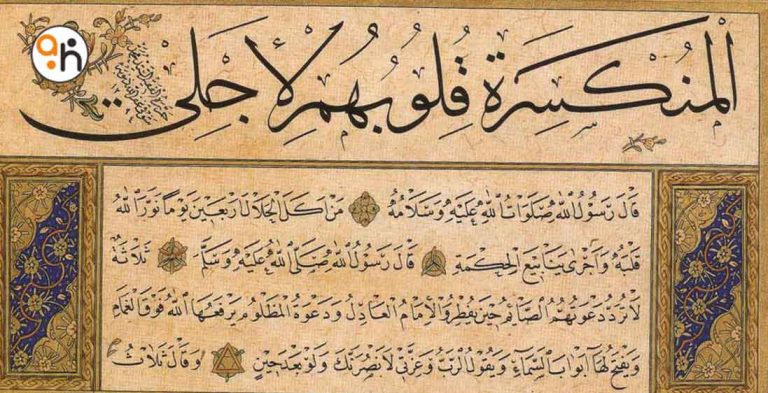 الْمُنْكَسِرَةِ قُلُوبُهُمْ لِأَجْلِي
قَالَ رَسُولُ اللهِ صَلَوَاتُ اللهِ عَلَيْهِ وَسَلَامُهُ مَنْ اَكَلَ الْحَلَالَ اَرْبَعِينَ يَوْمًا نَوَّرَ اللهُ
قَلْبَهُ وَاَجْرٰى يَنَابِيعَ الْحِكْمَةِ قَالَ رَسُولُ اللهِ صَلَّى اللهُ عَلَيْهِ وَسَلَّمَ ثَلَاثَةٌ
لَا تُرَدُّ دَعْوَتُهُمُ الصَّائِمُ حِينَ يُفْطِرُ وَالْاِمَامُ الْعَادِلُ وَدَعْوَةُ الْمَظْلُومِ يَرْفَعُهَا اللهُ فَوْقَ الْغَمَامِ
وَيَفْتَحُ لَهَا اَبْوَابَ السَّمَاءِ وَيَقُولُ الرَّبُّ وَعِزَّتِي لَاَنْصُرَنَّكَ وَلَوْ بَعْدَ حِينٍ وَقَالَ ثَلَاثٌ